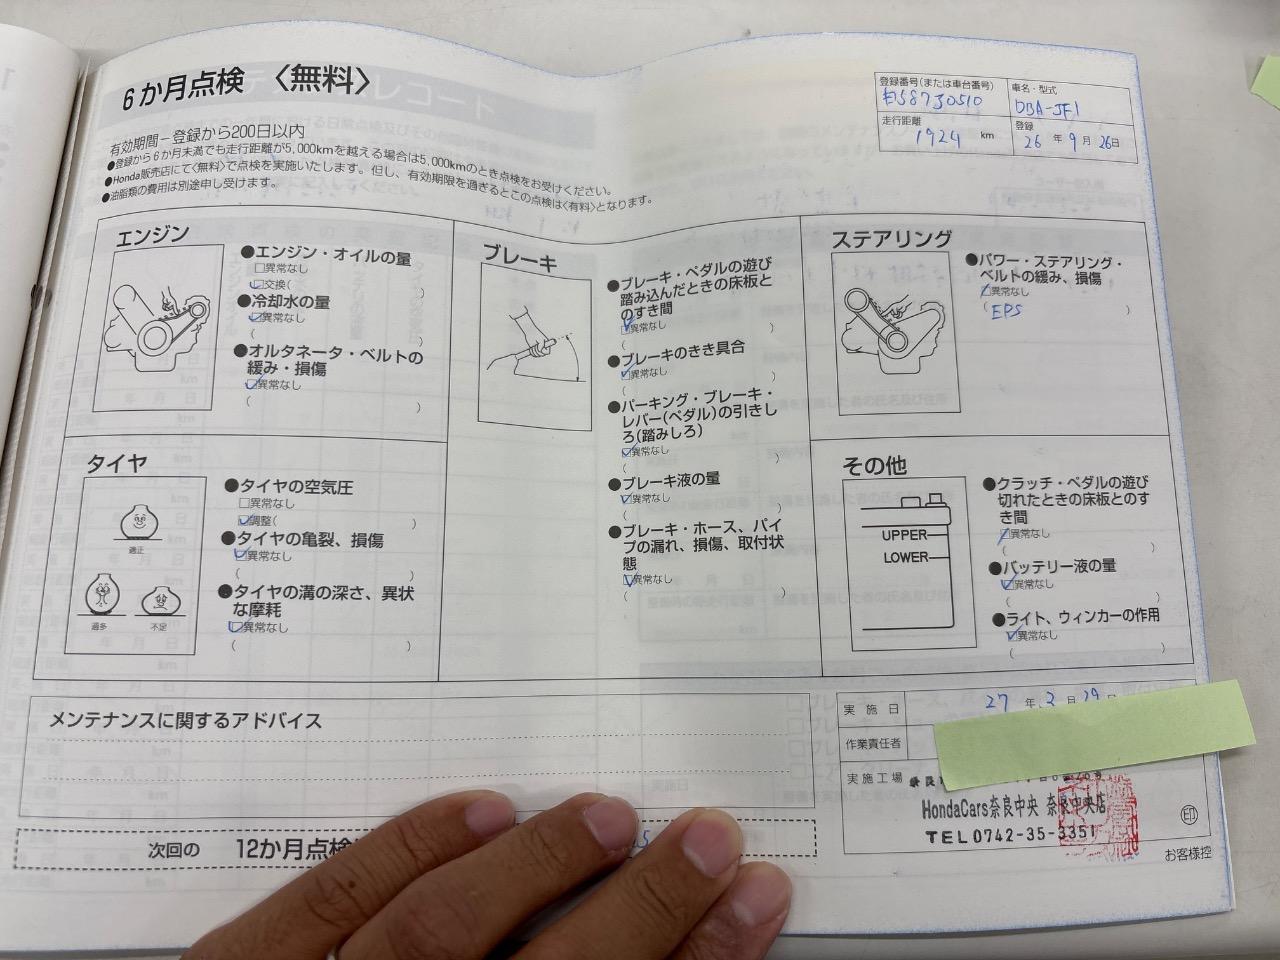 6か月点検〈無料〉
有効期間－登録から200日以内
●登録から6か月未満でも走行距離が5,000kmを越える場合は5,000kmのとき点検をお受けください。
●Honda販売店にて〈無料〉で点検を実施いたします。但し、有効期限を過ぎるとこの点検は〈有料〉となります。
●油脂類の費用は別途申し受けます。
登録番号(または車台番号)
車名・型式
DBA-JF1
走行距離
1924 km
登録
26年9月26日
エンジン
●エンジン・オイルの量
□異常なし
☑交換( )
●冷却水の量
☑異常なし
( )
●オルタネータ・ベルトの
緩み・損傷
☑異常なし
( )
タイヤ
適正
過多
不足
●タイヤの空気圧
□異常なし
☑調整( )
●タイヤの亀裂、損傷
☑異常なし
( )
●タイヤの溝の深さ、異状
な摩耗
☑異常なし
( )
ブレーキ
●ブレーキ・ペダルの遊び
踏み込んだときの床板と
のすき間
☑異常なし
( )
●ブレーキのきき具合
☑異常なし
( )
●パーキング・ブレーキ・
レバー(ペダル)の引きし
ろ(踏みしろ)
☑異常なし
( )
●ブレーキ液の量
☑異常なし
( )
●ブレーキ・ホース、パイ
プの漏れ、損傷、取付状
態
☑異常なし
( )
ステアリング
●パワー・ステアリング・
ベルトの緩み、損傷
異常なし
(EPS )
その他
UPPER
LOWER
●クラッチ・ペダルの遊び
切れたときの床板とのす
き間
異常なし
( )
●バッテリー液の量
☑異常なし
( )
●ライト、ウィンカーの作用
☑異常なし
( )
メンテナンスに関するアドバイス
次回の 12か月点検
実施日
27年3月29日
作業責任者
実施工場
HondaCars奈良中央 奈良中央店
TEL0742-35-3351
印
お客様控